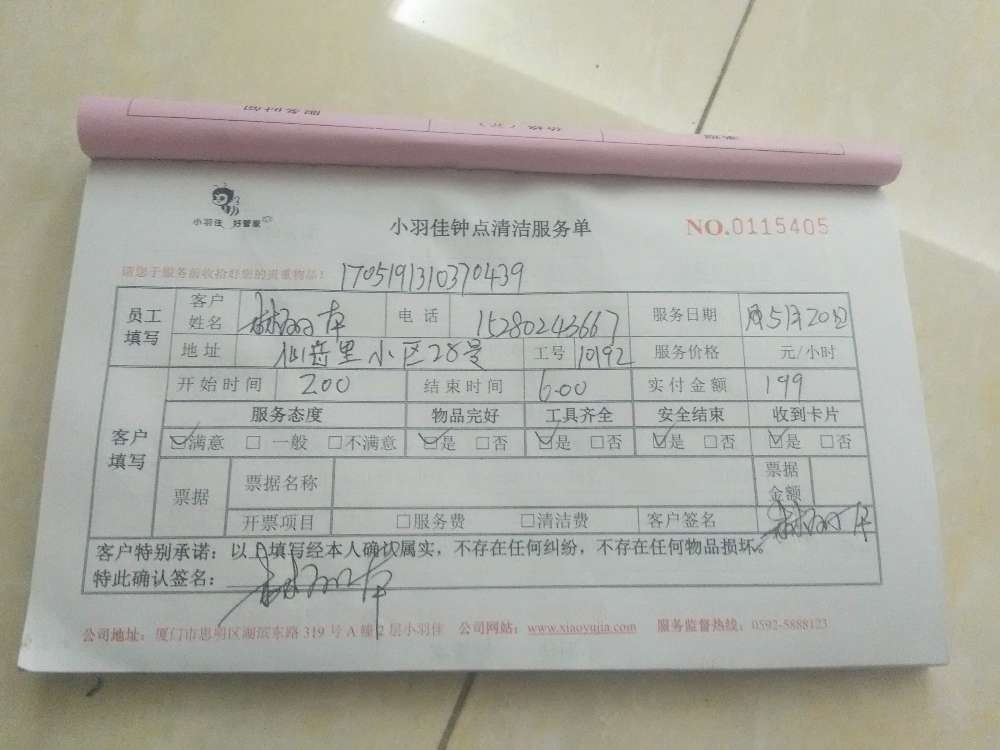 小羽佳 好管家
小羽佳钟点清洁服务单
NO.0115405
请您于服务前收拾好您的贵重物品!
1705191310370439
员工填写 客户姓名 电话 15280243667 服务日期 5月20日
地址 里小区28号 工号 10192 服务价格 元/小时
客户填写 开始时间 200 结束时间 600 实付金额 199
服务态度 物品完好 工具齐全 安全结束 收到卡片
☑满意 □ 一般 □不满意 ☑是 □否 ☑是 □否 ☑是 □否 ☑是 □否
票据 票据名称 票据金额
开票项目 □服务费 □清洁费 客户签名
客户特别承诺:以上填写经本人确认属实,不存在任何纠纷,不存在任何物品损坏。
特此确认签名:
公司地址:厦门市思明区湖滨东路 319 号 A 幢 2 层小羽佳 公司网站:www.xiaoyujia.com 服务监督热线:0592-5888123